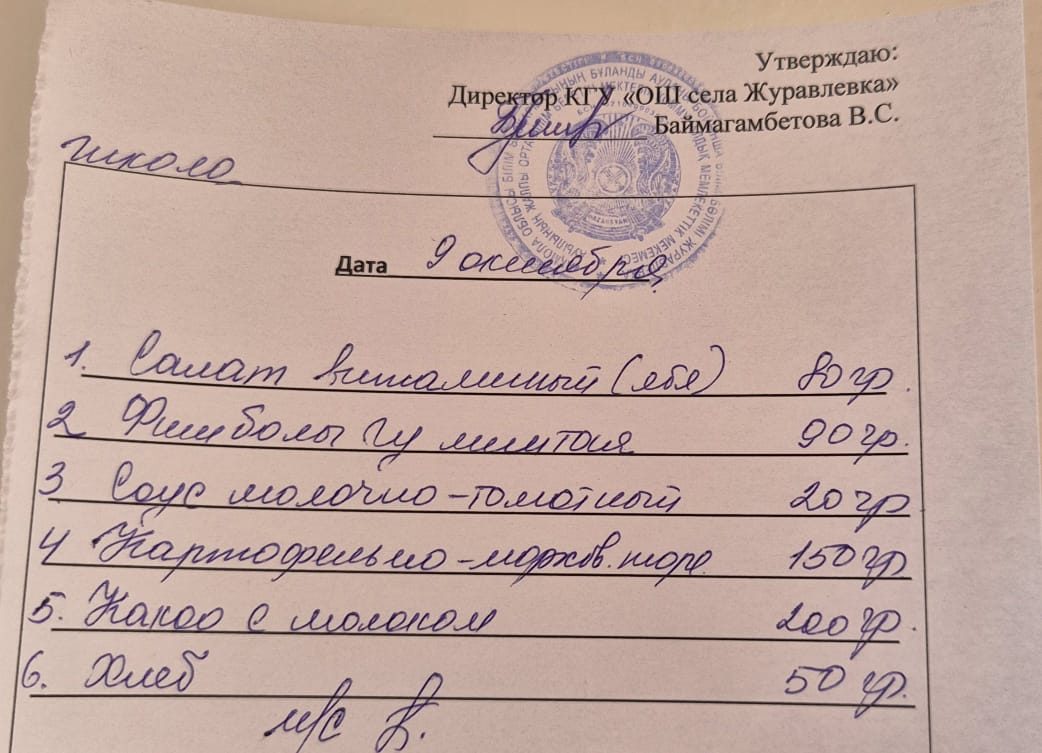 Утверждаю:
Директор КГУ «ОШ села Журавлевка»
Баймагамбетова В.С.
школа
Дата 9 октября
1. Салат витаминный (ябл) 80 гр.
2 Фишболы из минтая 90 гр.
3 Соус молочно-томатный 20 гр
4 Картофельно-морков. пюре 150 гр
5. Какао с молоком 200 гр.
6. Хлеб 50 гр.
м/с